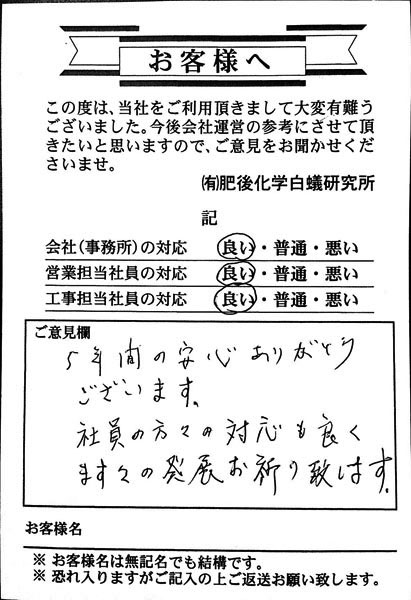 お客様へ
この度は、当社をご利用頂きまして大変有難う
ございました。今後会社運営の参考にさせて頂
きたいと思いますので、ご意見をお聞かせくだ
さいませ。
㈲肥後化学白蟻研究所
記
会社(事務所)の対応 良い・普通・悪い
営業担当社員の対応 良い・普通・悪い
工事担当社員の対応 良い・普通・悪い
ご意見欄
5年間の安心ありがとう
ございます。
社員の方々の対応も良く
ます々の発展お祈り致します。
お客様名
※ お客様名は無記名でも結構です。
※ 恐れ入りますがご記入の上ご返送お願い致します。